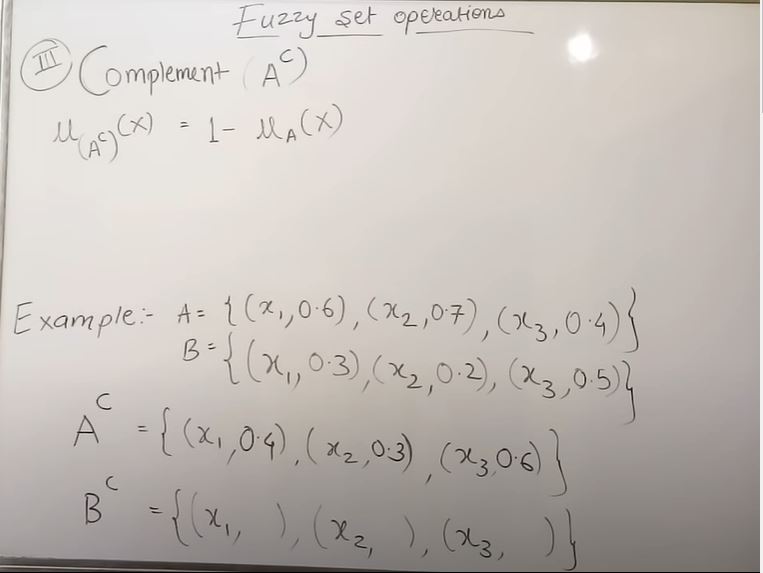 Fuzzy set operations
III Complement (A^C)
μ_(A^C)(x) = 1 - μ_A(x)
Example:- A = {(x₁, 0.6), (x₂, 0.7), (x₃, 0.4)}
B = {(x₁, 0.3), (x₂, 0.2), (x₃, 0.5)}
A^C = {(x₁, 0.4), (x₂, 0.3), (x₃, 0.6)}
B^C = {(x₁, ), (x₂, ), (x₃, )}